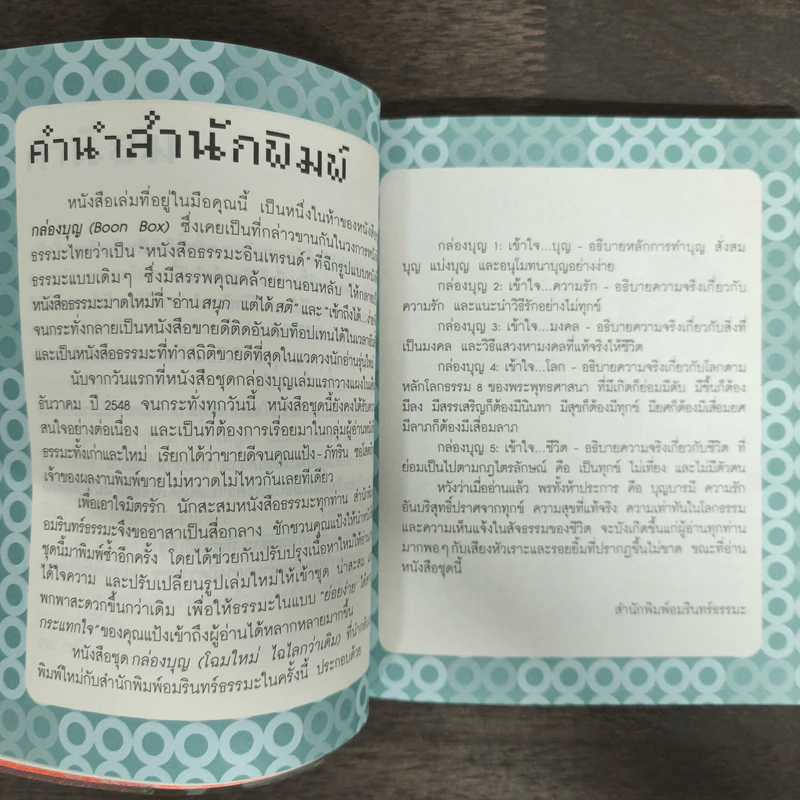 คำนำสำนักพิมพ์
หนังสือเล่มที่อยู่ในมือคุณนี้ เป็นหนึ่งในห้าของหนังสือชุด
กล่องบุญ (Boon Box) ซึ่งเคยเป็นที่กล่าวขานกันในวงการหนังสือ
ธรรมะไทยว่าเป็น "หนังสือธรรมะอินเทรนด์" ที่ฉีกรูปแบบหนังสือ
ธรรมะแบบเดิมๆ ซึ่งมีสรรพคุณคล้ายยานอนหลับ ให้กลายเป็น
หนังสือธรรมะมาดใหม่ที่ "อ่าน สนุก แต่ได้ สติ" และ "เข้าถึงได้...ง่าย
จนกระทั่งกลายเป็นหนังสือขายดีติดอันดับท็อปเทนได้ในเวลา
และเป็นหนังสือธรรมะที่ทำสถิติขายดีที่สุดในแวดวงนักอ่านรุ่นใหม่
นับจากวันแรกที่หนังสือชุดกล่องบุญเล่มแรกวางแผงใน
ธันวาคม ปี 2548 จนกระทั่งทุกวันนี้ หนังสือชุดนี้ยังคงได้รับความ
สนใจอย่างต่อเนื่อง และเป็นที่ต้องการเรื่อยมาในกลุ่มผู้อ่านหนังสือ
ธรรมะทั้งเก่าและใหม่ เรียกได้ว่าขายดีจนคุณแป้ง-ภัทริน
เจ้าของผลงานพิมพ์ขายไม่หวาดไม่ไหวกันเลยทีเดียว
เพื่อเอาใจมิตรรัก นักสะสมหนังสือธรรมะทุกท่าน สำนักพิมพ์
อมรินทร์ธรรมะจึงขออาสาเป็นสื่อกลาง ชักชวนคุณแป้งให้นำหนังสือ
ชุดนี้มาพิมพ์ซ้ำอีกครั้ง โดยได้ช่วยกันปรับปรุงเนื้อหาใหม่ให้อ่าน
ได้ใจความ และปรับเปลี่ยนรูปเล่มใหม่ให้เข้าชุด น่าสะสม
พกพาสะดวกขึ้นกว่าเดิม เพื่อให้ธรรมะในแบบ "ย่อยง่าย
กระแทกใจ" ของคุณแป้งเข้าถึงผู้อ่านได้หลากหลายมากขึ้น
หนังสือชุด กล่องบุญ (โฉมใหม่ ไฉไลกว่าเดิม) ที่นำกลับมา
พิมพ์ใหม่กับสำนักพิมพ์อมรินทร์ธรรมะในครั้งนี้ ประกอบด้วย
กล่องบุญ 1: เข้าใจ...บุญ - อธิบายหลักการทำบุญ สั่งสม
บุญ แบ่งบุญ และอนุโมทนาบุญอย่างง่าย
กล่องบุญ 2: เข้าใจ...ความรัก - อธิบายความจริงเกี่ยวกับ
ความรัก และแนะนำวิธีรักอย่างไม่ทุกข์
กล่องบุญ 3: เข้าใจ...มงคล - อธิบายความจริงเกี่ยวกับสิ่งที่
เป็นมงคล และวิธีแสวงหามงคลที่แท้จริงให้ชีวิต
กล่องบุญ 4: เข้าใจ...โลก - อธิบายความจริงเกี่ยวกับโลกตาม
หลักโลกธรรม 8 ของพระพุทธศาสนา ที่มีเกิดก็ย่อมมีดับ มีขึ้นก็ต้อง
มีลง มีสรรเสริญก็ต้องมีนินทา มีสุขก็ต้องมีทุกข์ มียศก็ต้องมีเสื่อมยศ
มีลาภก็ต้องมีเสื่อมลาภ
กล่องบุญ 5: เข้าใจ...ชีวิต - อธิบายความจริงเกี่ยวกับชีวิต ที่
ย่อมเป็นไปตามกฎไตรลักษณ์ คือ เป็นทุกข์ ไม่เที่ยง และไม่มีตัวตน
หวังว่าเมื่ออ่านแล้ว พรทั้งห้าประการ คือ บุญบารมี ความรัก
อันบริสุทธิ์ปราศจากทุกข์ ความสุขที่แท้จริง ความเท่าทันในโลกธรรม
และความเห็นแจ้งในสัจธรรมของชีวิต จะบังเกิดขึ้นแก่ผู้อ่านทุกท่าน
มากพอๆ กับเสียงหัวเราะและรอยยิ้มที่ปรากฏขึ้นไม่ขาด ขณะที่อ่าน
หนังสือชุดนี้
สำนักพิมพ์อมรินทร์ธรรมะ